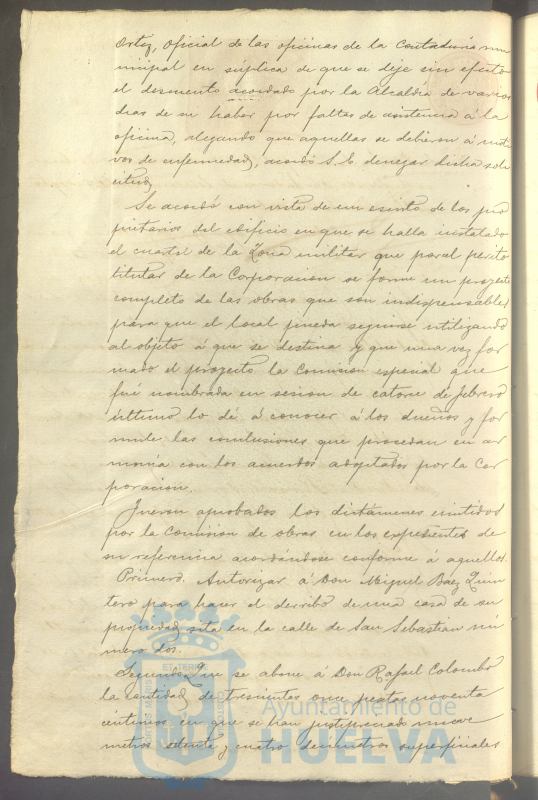 Ortiz, Oficial de las oficinas de la Contaduría mu
nicipal en súplica de que se deje sin efecto
el descuento acordado por la Alcaldía de varios
dias de su haber por faltas de asistencia á la
oficina, alegando que aquellas se debieron á moti
vos de enfermedad, acordó S. E. denegar dicha soli
citud.
Se acordó con vista de un escrito de los pro
pietarios del edificio en que se halla instalado
el cuartel de la Zona militar que por el perito
titular de la Corporacion se forme un proyecto
completo de las obras que son indispensables
para que el local pueda seguirse utilizando
al objeto á que se destina y que una vez for
mado el proyecto la Comision especial que
fué nombrada en sesion de catorce de febrero
último lo dé á conocer á los dueños y for
mule las conclusiones que procedan en ar
monía con los acuerdos adoptados por la Cor
poracion.
Fueron aprobados los dictámenes emitidos
por la Comision de obras en los expedientes de
su referencia acordándose conforme á aquellos.
Primero. Autorizar á Don Miguel Báez Quin
tero para hacer el derribo de una casa de su
propiedad sita en la calle de San Sebastian nú
mero dos.
Segundo. Que se abone á Don Rafael Colombo
la cantidad de trescientas once pesetas noventa
céntimos en que se han justipreciado nueve
metros setenta y cuatro decímetros superficiales
Ayuntamiento de
HUELVA